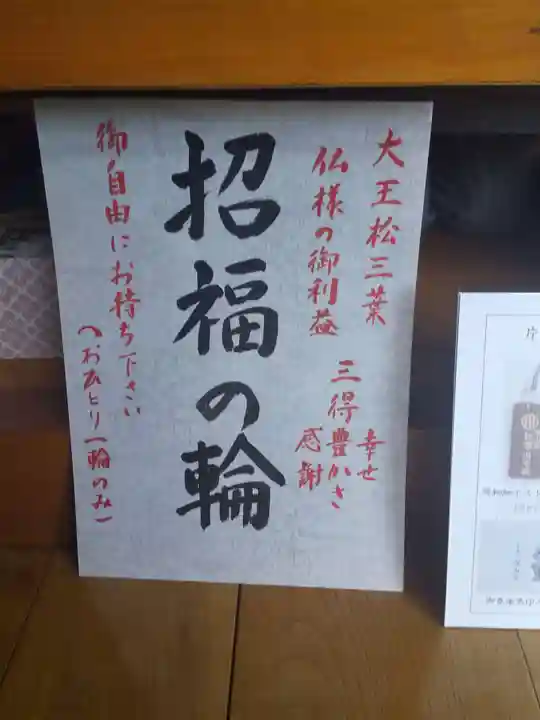 大王松三葉
仏様の御利益
三得
幸せ
豊かさ
感謝
招福の輪
御自由にお持ち下さい
(おひとり一輪のみ)